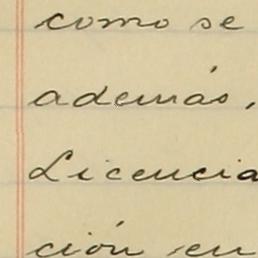 como se
además,
Licencia
ción en